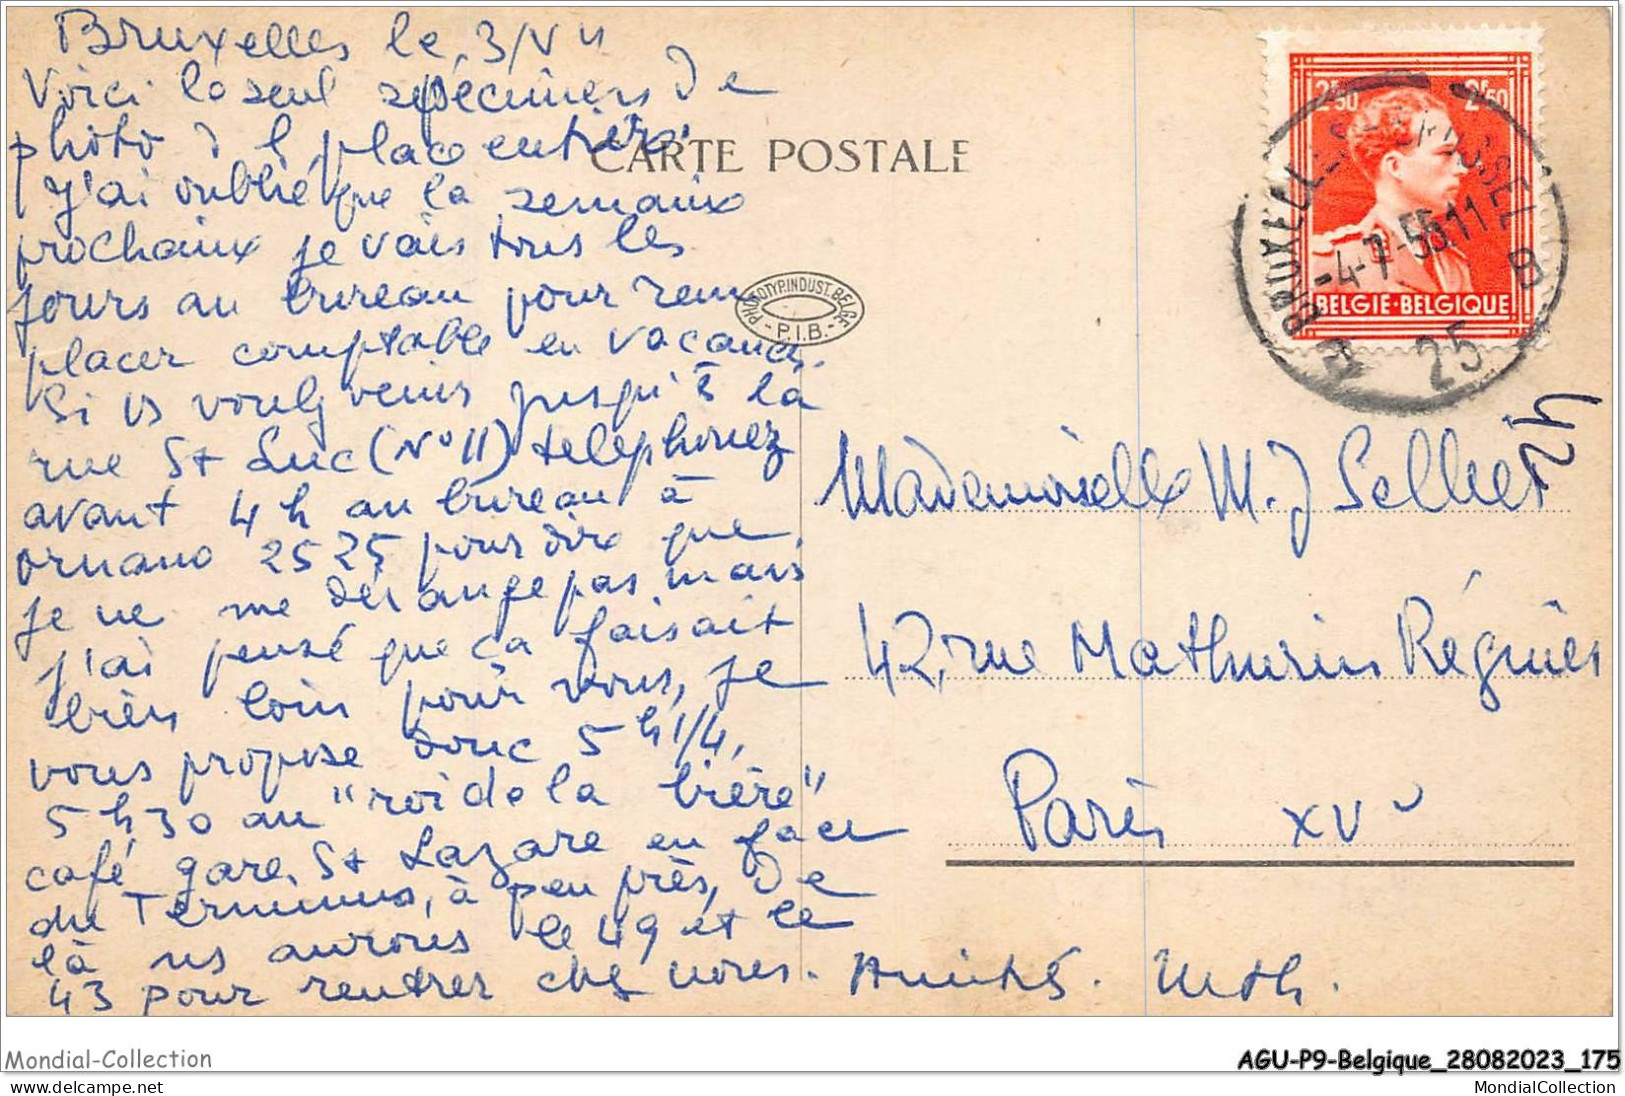 Bruxelles le 3/V"
Voici le seul spécimens de
photo d l place entière.
J'ai oublié que la semaine
prochaine je vais tous les
jours au bureau pour rem
placer comptable en vacances.
Si vs voulez venir jusqu'à la
rue St Luc (N° 11) telephonez
avant 4 h au bureau à
ornano 2525 pour dire que
je ne me dérange pas mais
j'ai pensé que ça faisait
bien loin pour vous, je
vous propose donc 5 h 1/4,
5 h 30 au "roi de la bière"
café gare St Lazare en face
du Terminus, à peu près, de
là ns aurons le 49 et le
43 pour rentrer chez nous. Amitié. Mth.
CARTE POSTALE
PHOTOTYP.INDUST.BELGE
- P.I.B. -
2F50 2F50
BELGIE·BELGIQUE
BRUXELLES-BRUSSEL
-4-7-55.11
B B
25
42
Mademoiselle M.J Sellier
42, rue Mathurin Régnier
Paris XVe
Mondial-Collection
AGU-P9-Belgique_28082023_175
www.delcampe.net
MondialCollection